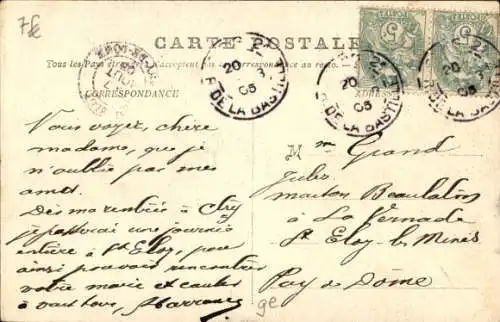 7f
CARTE POSTALE
Tous les Pays étrangers n'acceptent pas la correspondance au recto.
CORRESPONDANCE
R. DE LA BASTILLE
20
05
R. DE LA BASTILLE
20
05
R. DE LA BASTILLE
20
05
Vous voyez, chère
madame, que je
n'oublie pas mes
amis.
Dès ma rentrée à
je passerai une journée
entière à St Eloy, pour
ainsi pouvoir rencontrer
votre marie et causer
à
Mme Grand
Jules
maison Beaulaton
à La Vernade
St Eloy les Mines
Puy de Dôme
ge